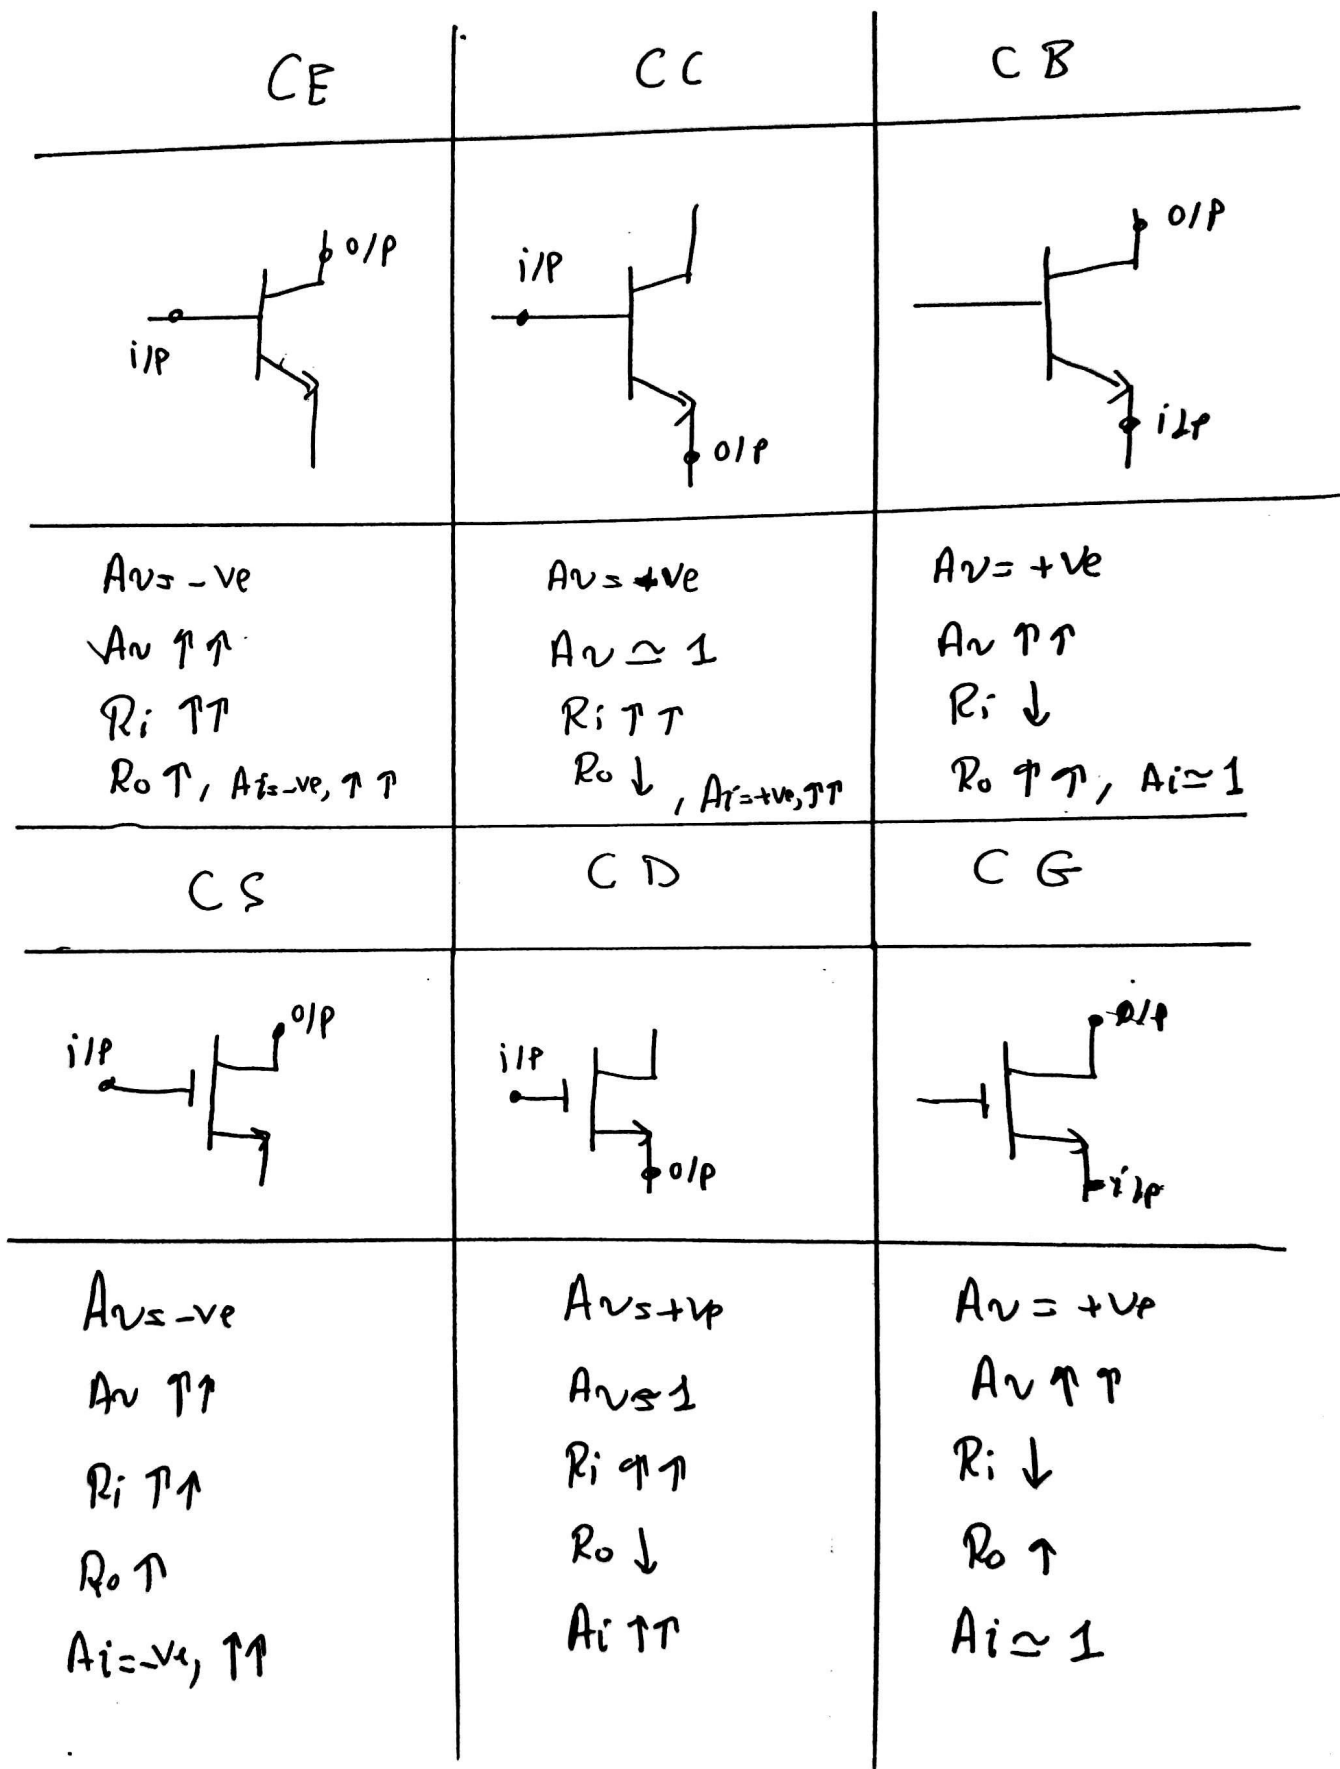 CE
CC
CB
o/p
i/p
i/p
o/p
o/p
i/p
Av = -ve
Av ↑↑
Ri ↑↑
Ro ↑, Ai = -ve, ↑↑
Av = +ve
Av ≃ 1
Ri ↑↑
Ro ↓, Ai = +ve, ↑↑
Av = +ve
Av ↑↑
Ri ↓
Ro ↑↑, Ai ≃ 1
CS
CD
CG
i/p
o/p
i/p
o/p
o/p
i/p
Av = -ve
Av ↑↑
Ri ↑↑
Ro ↑
Ai = -ve, ↑↑
Av = +ve
Av ≃ 1
Ri ↑↑
Ro ↓
Ai ↑↑
Av = +ve
Av ↑↑
Ri ↓
Ro ↑
Ai ≃ 1